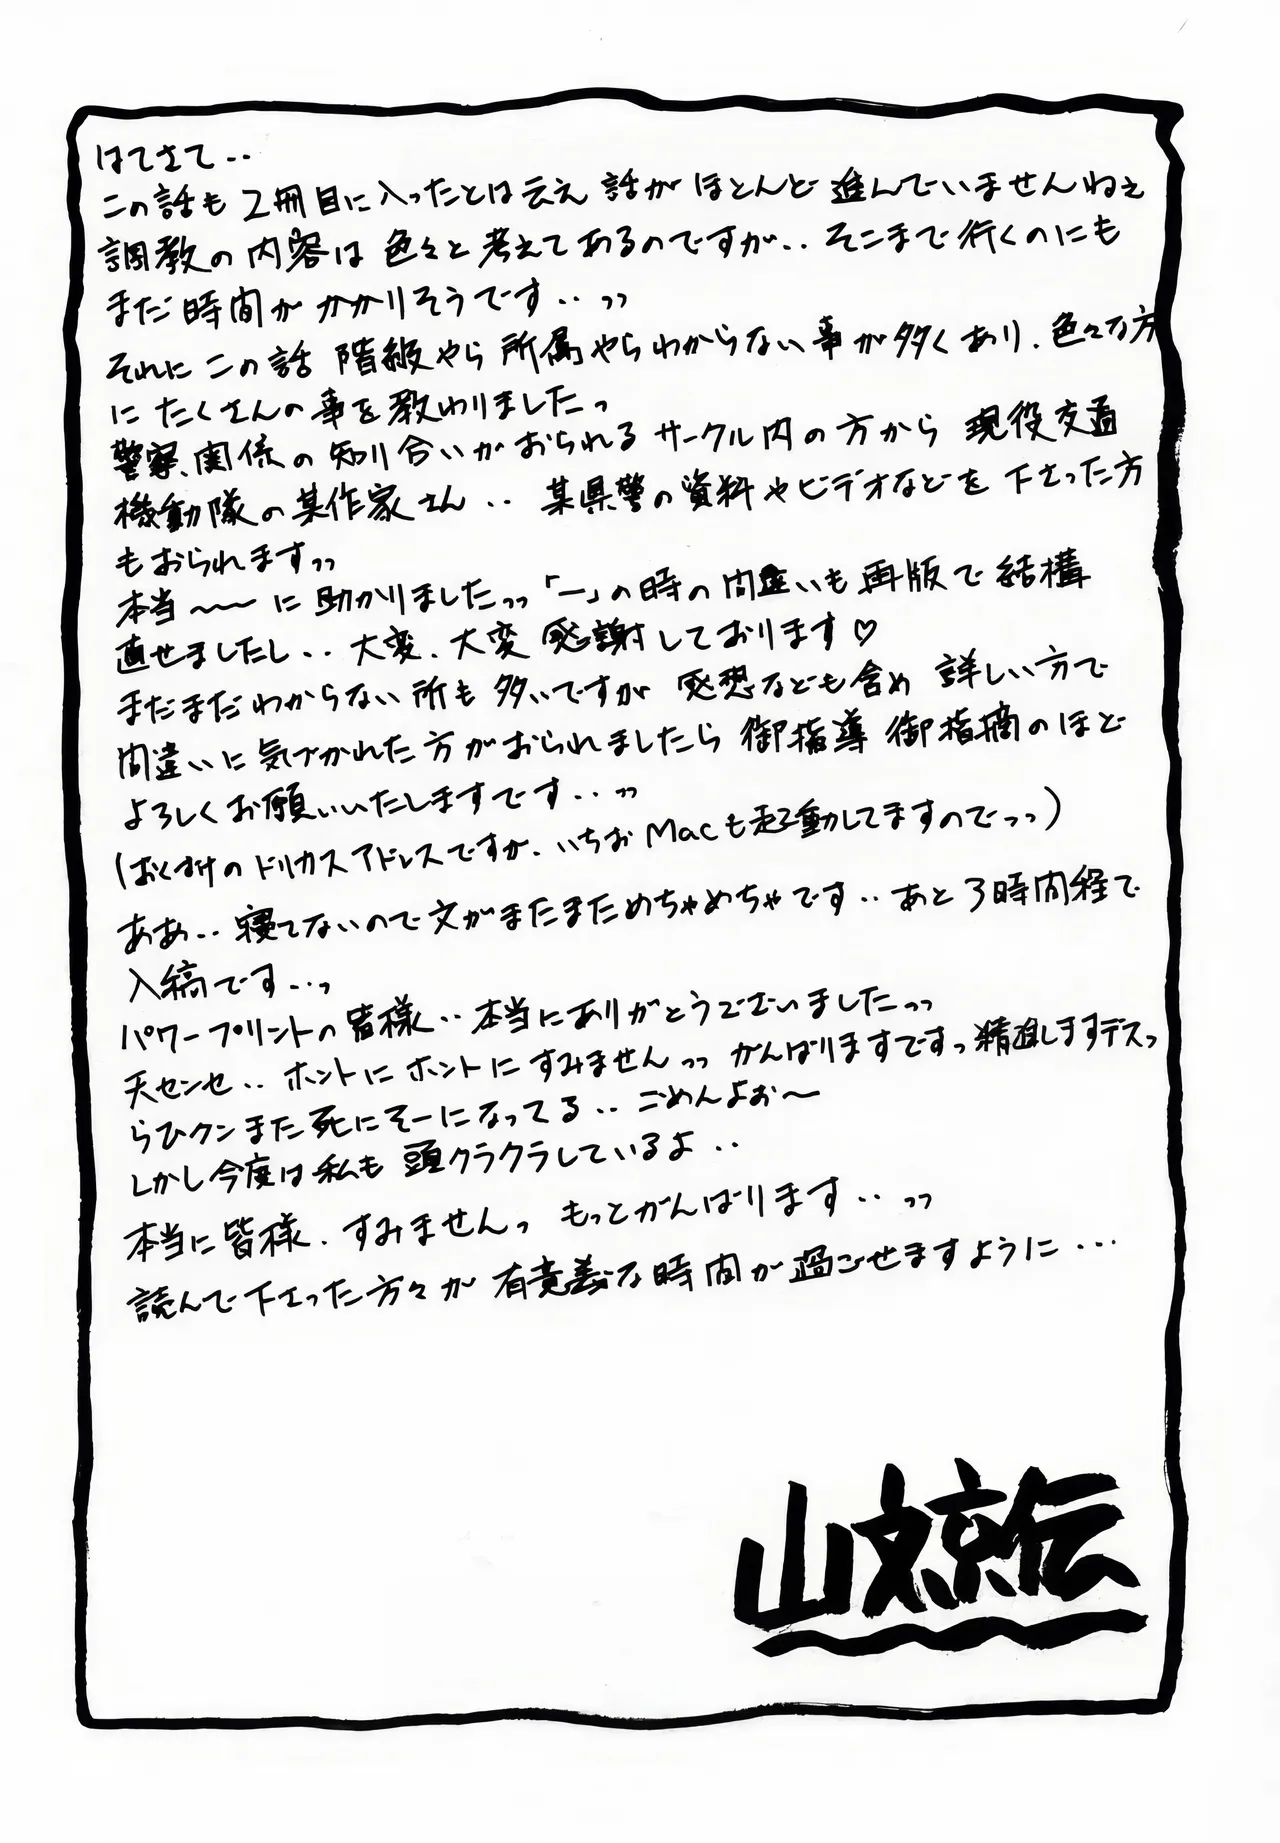 はてさて・・
この話も2冊目に入ったとは云え 話がほとんど進んでいませんねぇ
調教の内容は色々と考えてあるのですが・・そこまで行くのにも
まだ時間がかかりそうです・・っっ
それにこの話 階級やら所属やらわからない事が多くあり、色々な方
にたくさんの事を教わりましたっ
警察関係の知り合いがおられるサークル内の方から 現役交通
機動隊の某作家さん・・ 某県警の資料やビデオなどを下さった方
もおられますっっ
本当〜〜に助かりましたっっ「一」の時の間違いも再版で結構
直せましたし・・大変、大変感謝しております♡
まだまだわからない所も多いですが 感想なども含め 詳しい方で
間違いに気づかれた方がおられましたら御指導 御指摘のほど
よろしくお願いいたしますです・・っっ
(おくづけのドリカスアドレスですが、いちおMacも起動してますのでっっ)
ああ・・寝てないので文がまたまためちゃめちゃです・・あと3時間程で
入稿です・・っ
パワープリントの皆様・・本当にありがとうございましたっっ
天センセ・・ホントにホントにすみませんっっ がんばりますですっ精進しますデスっ
らひクンまた死にそーになってる・・ごめんよぉ〜
しかし今度は私も頭クラクラしているよ・・
本当に皆様、すみませんっ もっとがんばります・・っっ
読んで下さった方々が有意義な時間が過ごせますように・・・
山文京伝